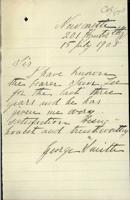 Newcastle
15 July 1908
Sir
I have known
the bearer Sun Lee
for the last three
years and he has
given me every
satisfaction being
honest and trustworthy
George Smith